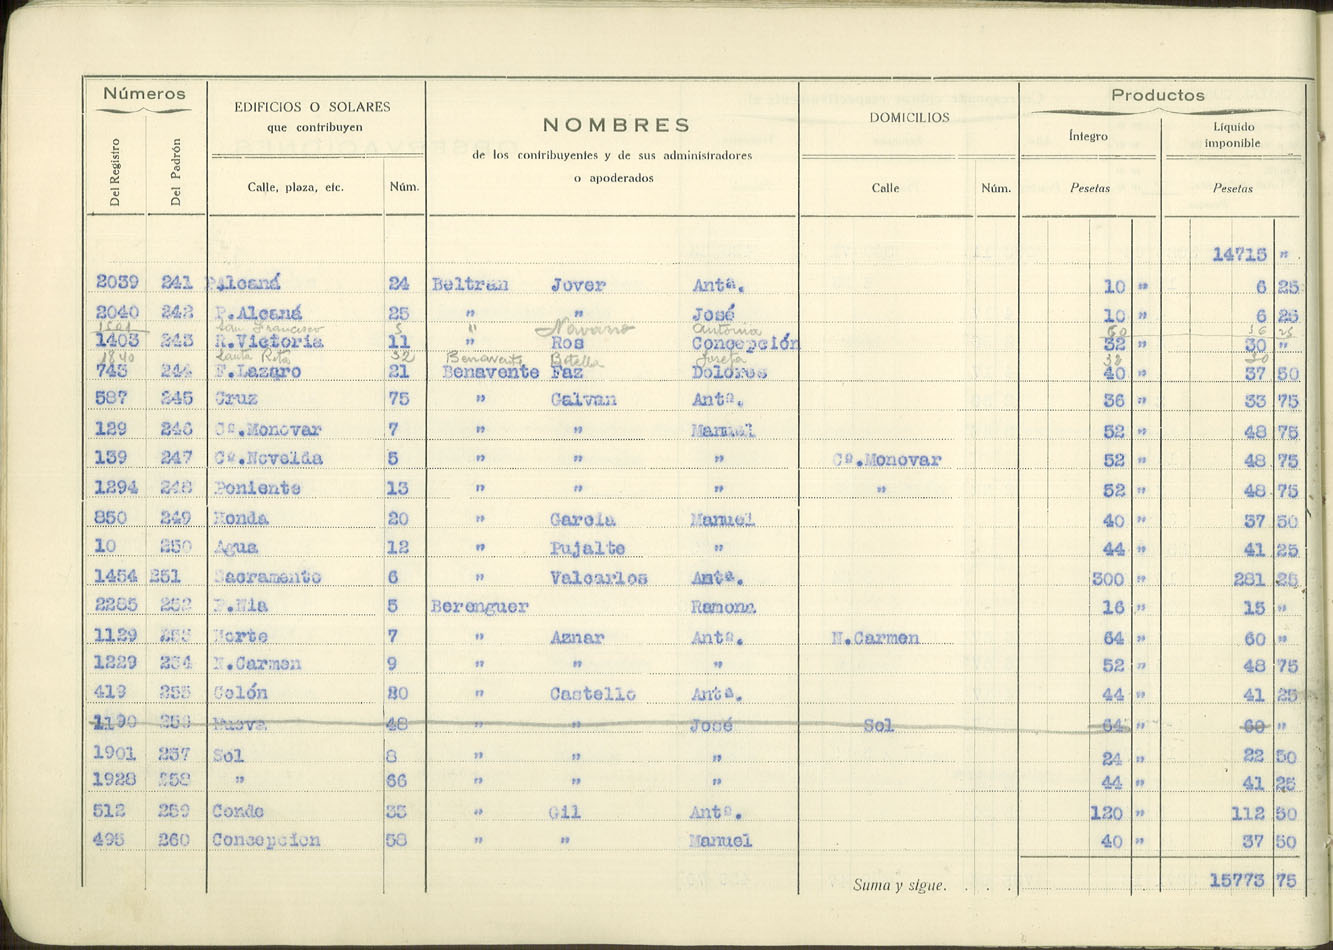 Números
EDIFICIOS O SOLARES
que contribuyen
NOMBRES
de los contribuyentes y de sus administradores
o apoderados
DOMICILIOS
Productos
Íntegro
Líquido
imponible
Del Registro
Del Padrón
Calle, plaza, etc. Núm.
Calle Núm.
Pesetas Pesetas
14715 "
2039 241 P.Alcaná 24 Beltran Jover Antª. 10 " 6 25
2040 242 P.Alcaná 25 " " José 10 " 6 25
San Francisco 5 " Navarro Antonia 60 56 25
1403 243 R.Victoria 11 " Ros Concepción 32 " 30 "
1840 Santa Rita 32 Benavente Botella Josefa 32 30
743 244 F.Lazaro 21 Benavente Faz Dolores 40 " 37 50
587 245 Cruz 75 " Galvan Antª. 36 " 33 75
129 246 Cº.Monovar 7 " " Manuel 52 " 48 75
139 247 Cº.Novelda 5 " " " Cº.Monovar 52 " 48 75
1294 248 Poniente 13 " " " " 52 " 48 75
850 249 Honda 20 " Garcia Manuel 40 " 37 50
10 250 Agua 12 " Pujalte " 44 " 41 25
1454 251 Sacramento 6 " Valcarlos Antª. 300 " 281 25
2285 252 P.Nia 5 Berenguer Ramona 16 " 15 "
1129 253 Norte 7 " Aznar Antª. N.Carmen 64 " 60 "
1229 254 N.Carmen 9 " " " 52 " 48 75
419 255 Colón 20 " Castello Antª. 44 " 41 25
1190 256 Nueva 48 " " José Sol 64 " 60 "
1901 257 Sol 8 " " " 24 " 22 50
1928 258 " 66 " " " 44 " 41 25
512 259 Conde 35 " Gil Antª. 120 " 112 50
495 260 Concepcion 58 " " Manuel 40 " 37 50
Suma y sigue. . . . 15773 75